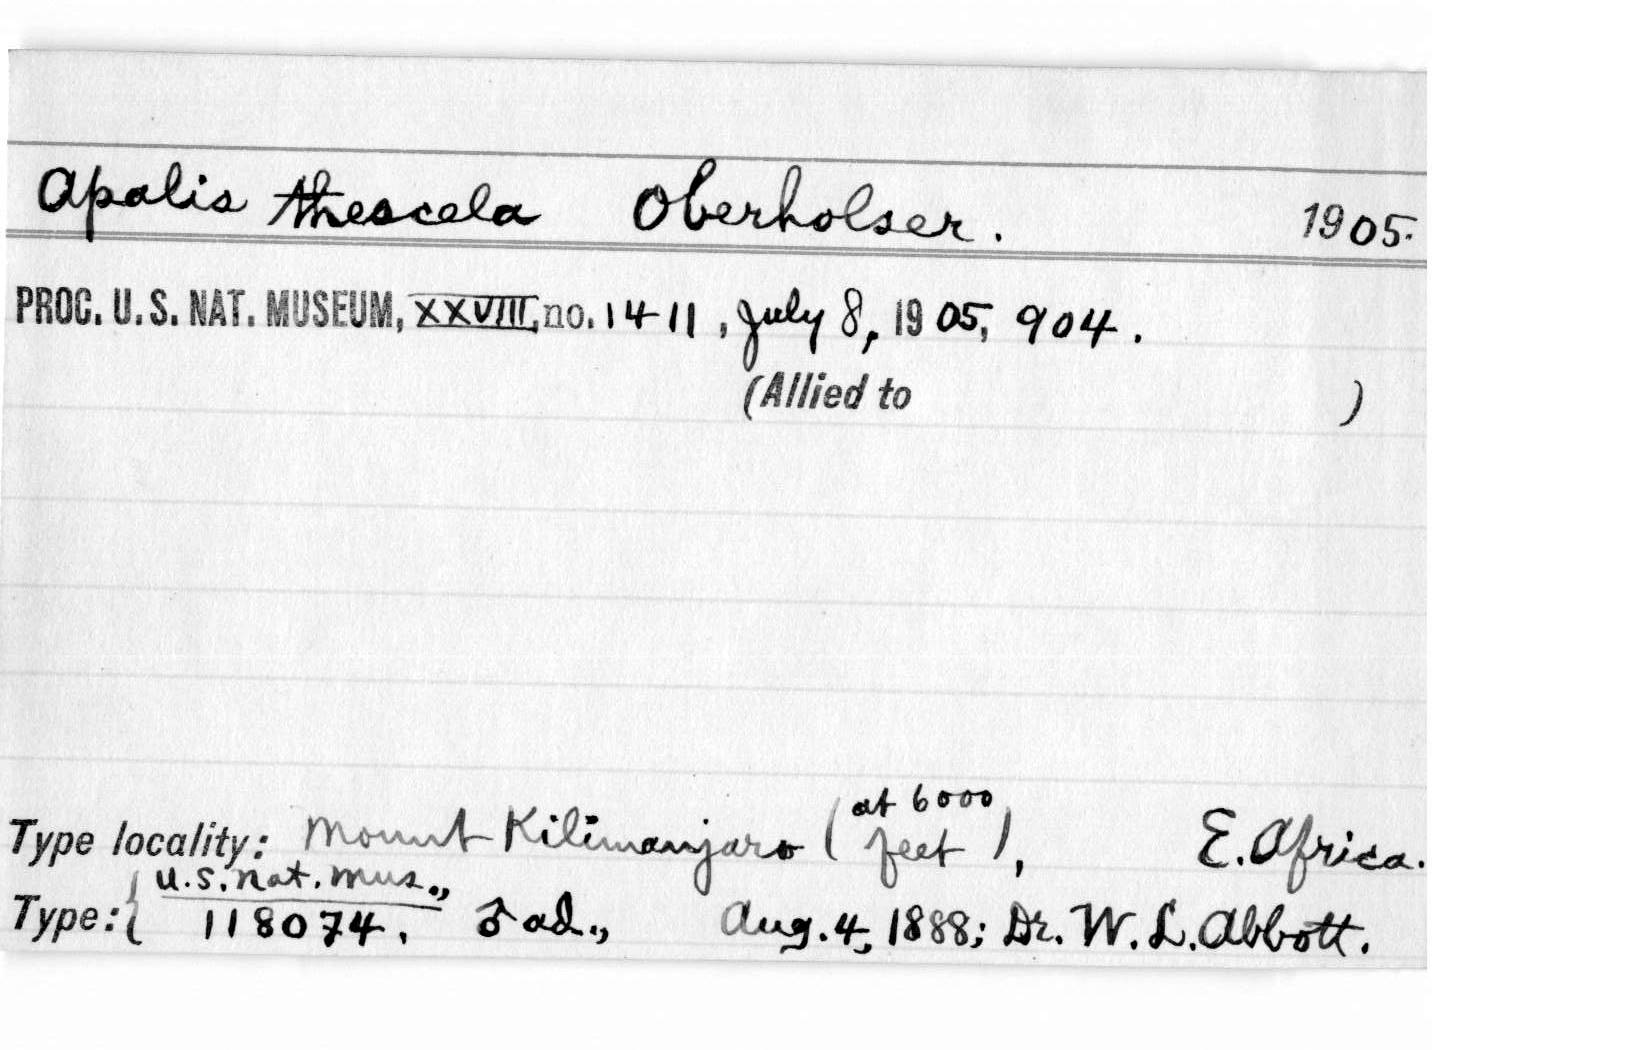 Apalis thescela Oberholser. 1905.
PROC. U. S. NAT. MUSEUM, XXVIII, no. 1411, July 8, 1905, 904.
(Allied to )
Type locality: Mount Kilimanjaro (at 6000 feet), E. Africa.
Type: { U.S. Nat. Mus.,
118074. ♂ ad., Aug. 4, 1888; Dr. W. L. Abbott.